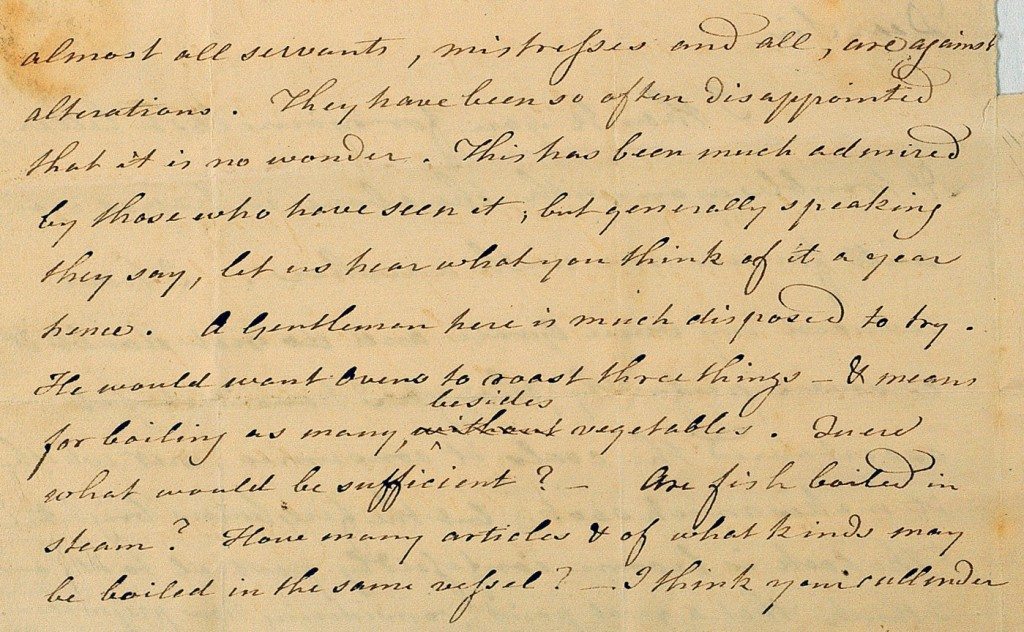 almost all servants, mistresses and all, are against
alterations. They have been so often disappointed
that it is no wonder. This has been much admired
by those who have seen it, but generally speaking
they say, let us hear what you think of it a year
hence. A Gentleman here is much disposed to try.
He would want Ovens to roast three things – & means
besides
for boiling as many, without vegetables. Quere
what would be sufficient? – Are fish boiled in
steam? How many articles & of what kinds may
be boiled in the same vessel? – I think your cullinder